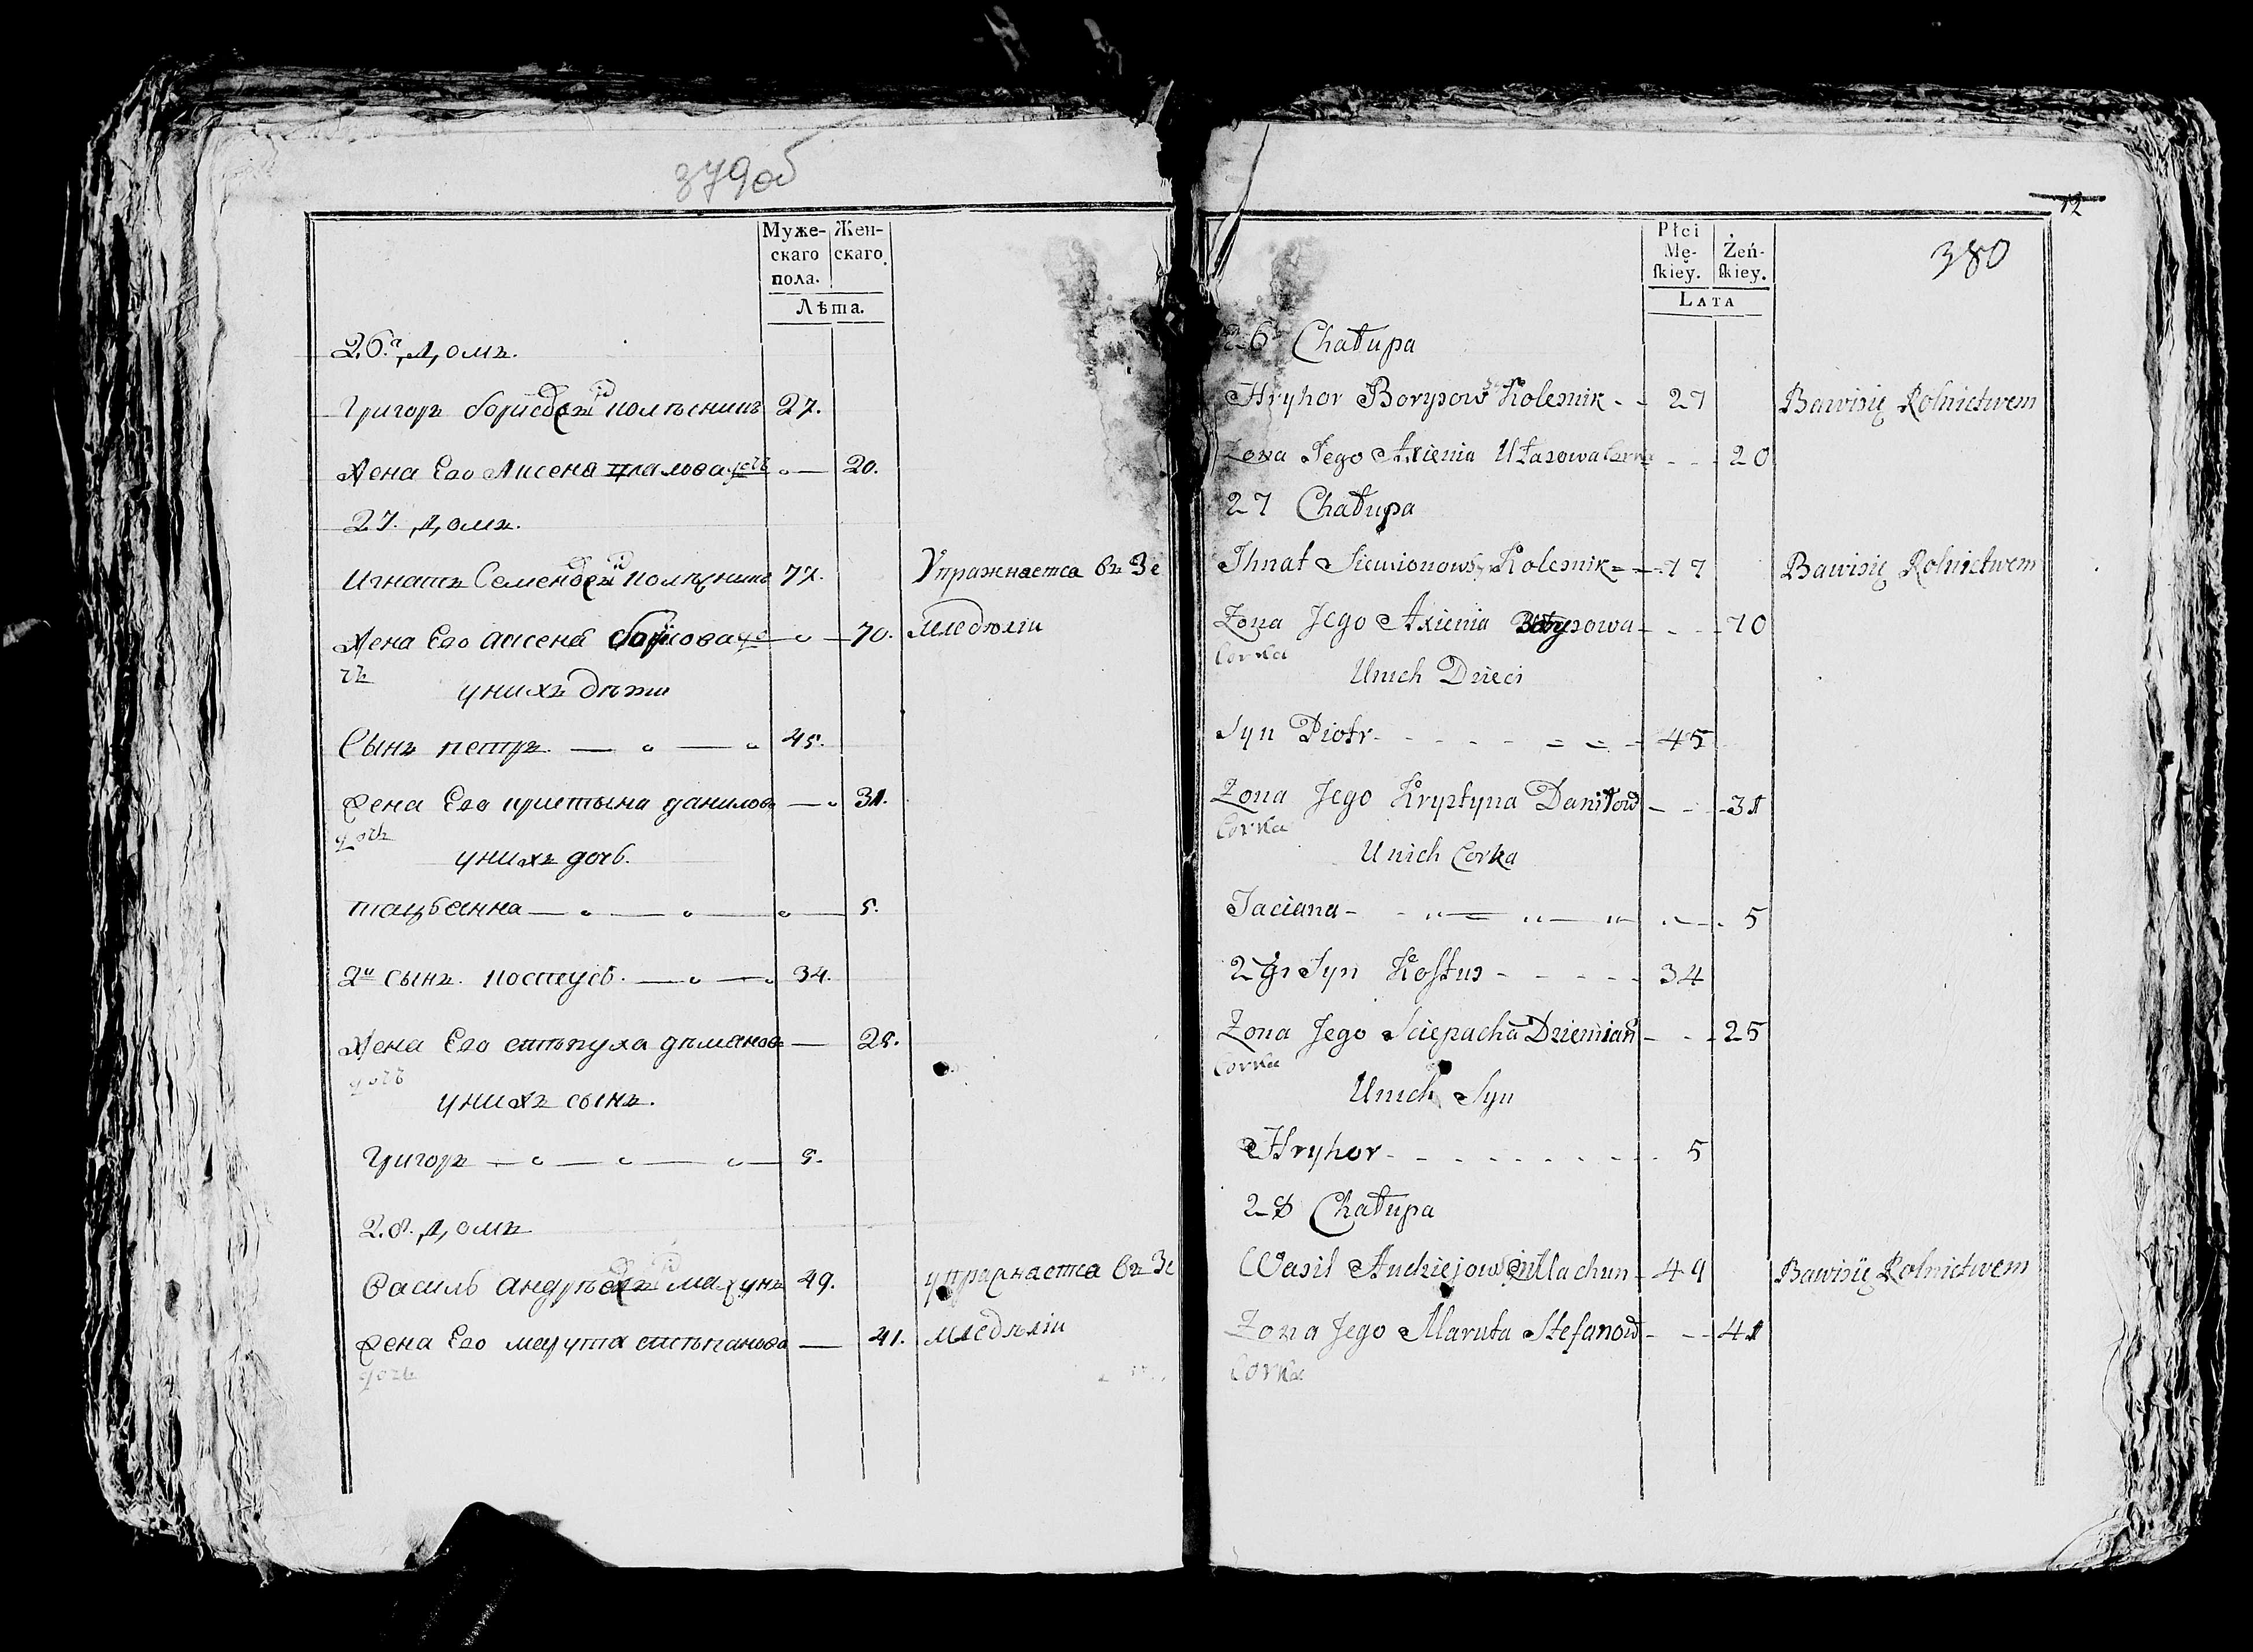 379об
Муже-
скаго
пола.
Жен-
скаго.
Лѣта.
26й домъ.
Григоръ Борисовъ Колѣсникъ 27.
Жена Его Аксеня дочь — 20.
27. домъ.
Игнатъ Семеновъ Колѣсникъ 77. Упражняется въ Зе
Жена Его Аксеня до — 70. мледѣлiи
чь
у нихъ дѣти
Сынъ Петръ — 45.
Жена Его Кристына Данилова — 31.
дочь
у нихъ дочь.
Тацьянна — 5.
2й сынъ Костусь. — 34.
Жена Его Стѣпуха Дѣмянова — 25.
дочь
у нихъ сынъ.
Григоръ — 5.
28. домъ
Василь Андрѣевъ Махунъ 49. упражняется въ Зе
Жена Его Марута Стѣпанова — 41. мледѣлiи
дочь
12
380
Płci
Mę-
ſkiey.
Żeń-
ſkiey.
LATA
26 Chałupa
Hryhor Borysow Kolesnik - - 27 Bawi się Rolnictwem
Zona Jego Axienia Ułasowa Corka - - - 20
27 Chałupa
Ihnat Siemionow Kolesnik - - 77 Bawi się Rolnictwem
Zona Jego Axienia - - - 70
Corka
U nich Dzieci
Syn Piotr - - - - - - 45
Zona Jego Krystyna Daniłow - - - 31
Corka
U nich Corka
Taciana - - - - 5
2gi Syn Kostus - - - - - 34
Zona Jego Sciepacha Dziemian - - - 25
Corka
U nich Syn
Hryhor - - - - - - - - - 5
28 Chałupa
Wasil Machun - 49 Bawi się Rolnictwem
Zona Jego Maruta Stefanow - - - 41
Corka